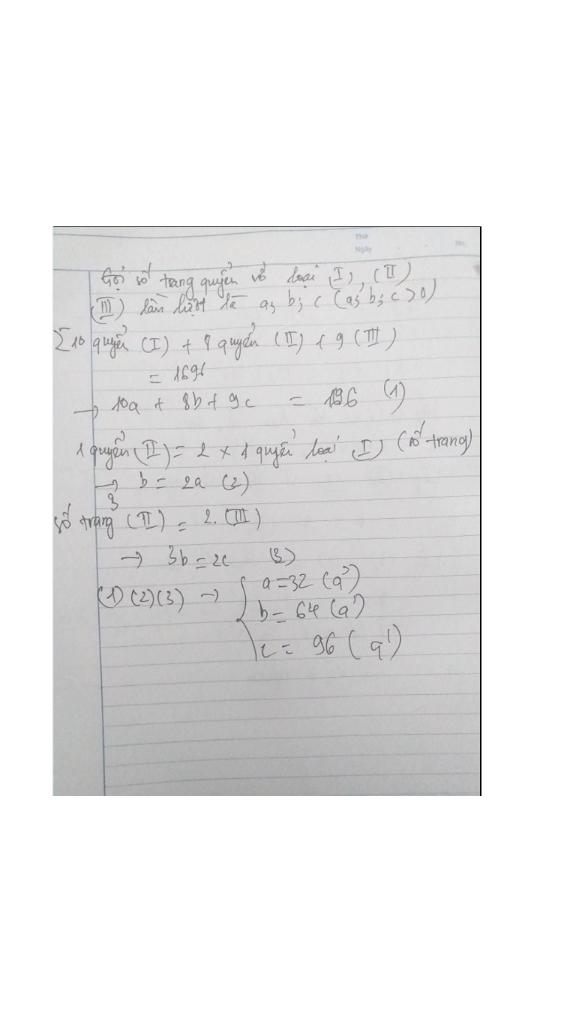 Gọi số trang quyển vở loại (I), (II)
(III) lần lượt là a; b; c (a; b; c > 0)
Σ 10 quyển (I) + 8 quyển (II) + 9 (III)
= 1696
→ 10a + 8b + 9c = 1696 (1)
1 quyển (II) = 2 × 1 quyển loại (I) (số trang)
→ b = 2a (2)
3 số trang (II) = 2. (III)
→ 3b = 2c (3)
(1) (2) (3) → { a = 32
b = 64
c = 96